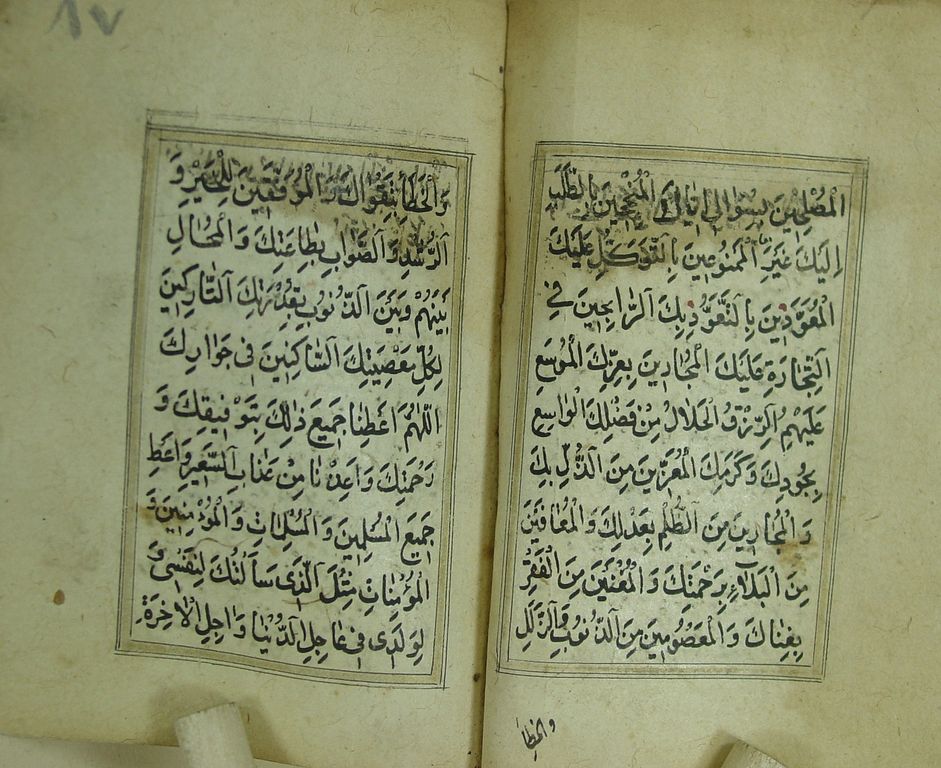 الْمُصْلِحِينَ بِسُؤَالِي إِيَّاكَ الْمُنْجِحِينَ بِالطَّلَبِ
إِلَيْكَ غَيْرِ الْمَمْنُوعِينَ بِالتَّوَكُّلِ عَلَيْكَ
الْمُعَوَّذِينَ بِالتَّعَوُّذِ بِكَ الرَّابِحِينَ فِي
التِّجَارَةِ عَلَيْكَ الْمُجَارِينَ بِعِزِّكَ الْمُوَسَّعِ
عَلَيْهِمُ الرِّزْقُ الْحَلَالُ مِنْ فَضْلِكَ الْوَاسِعِ
بِجُودِكَ وَكَرَمِكَ الْمُعَزِّينَ مِنَ الذُّلِّ بِكَ
وَ الْمُجَارِينَ مِنَ الظُّلْمِ بِعَدْلِكَ وَالْمُعَافَيْنَ
مِنَ الْبَلَاءِ بِرَحْمَتِكَ وَالْمُغْنَيْنَ مِنَ الْفَقْرِ
بِغِنَاكَ وَالْمَعْصُومِينَ مِنَ الذُّنُوبِ وَالزَّلَلِ
والخطا
وَالْخَطَأِ بِتَقْوَاكَ وَالْمُوَفَّقِينَ لِلْخَيْرِ وَ
الرُّشْدِ وَالصَّوَابِ بِطَاعَتِكَ وَالْمُحَالِ
بَيْنَهُمْ وَبَيْنَ الذُّنُوبِ بِقُدْرَتِكَ التَّارِكِينَ
لِكُلِّ مَعْصِيَتِكَ السَّاكِنِينَ فِي جَوَارِكَ
اللّٰهُمَّ اَعْطِنَا جَمِيعَ ذٰلِكَ بِتَوْفِيقِكَ وَ
رَحْمَتِكَ وَاَعِذْنَا مِنْ عَذَابِ السَّعِيرِ وَاَعْطِ
جَمِيعَ الْمُسْلِمِينَ وَالْمُسْلِمَاتِ وَالْمُؤْمِنِينَ وَ
الْمُؤْمِنَاتِ مِثْلَ الَّذِي سَاَلْتُكَ لِنَفْسِي وَ
لِوَلَدِي فِي عَاجِلِ الدُّنْيَا وَاٰجِلِ الْاٰخِرَةِ